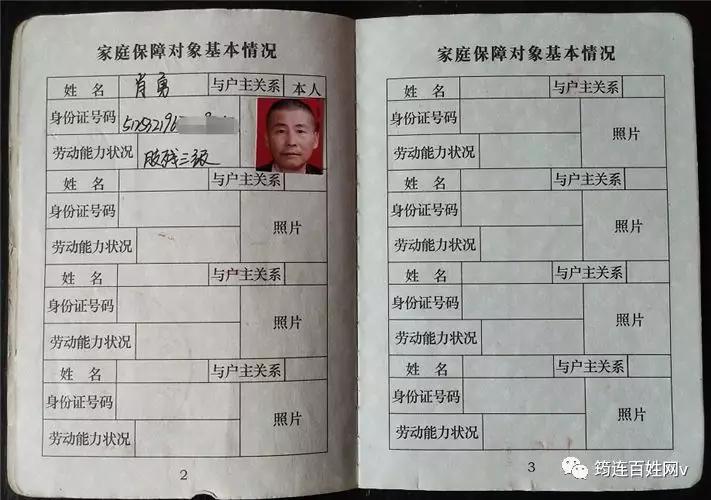 家庭保障对象基本情况
姓名 肖勇 与户主关系 本人
身份证号码
劳动能力状况 肢残三级
姓名 与户主关系
身份证号码 照片
劳动能力状况
姓名 与户主关系
身份证号码 照片
劳动能力状况
姓名 与户主关系
身份证号码 照片
劳动能力状况
2
家庭保障对象基本情况
姓名 与户主关系
身份证号码 照片
劳动能力状况
姓名 与户主关系
身份证号码 照片
劳动能力状况
姓名 与户主关系
身份证号码 照片
劳动能力状况
姓名 与户主关系
身份证号码 照片
劳动能力状况
3
筠连百姓网v